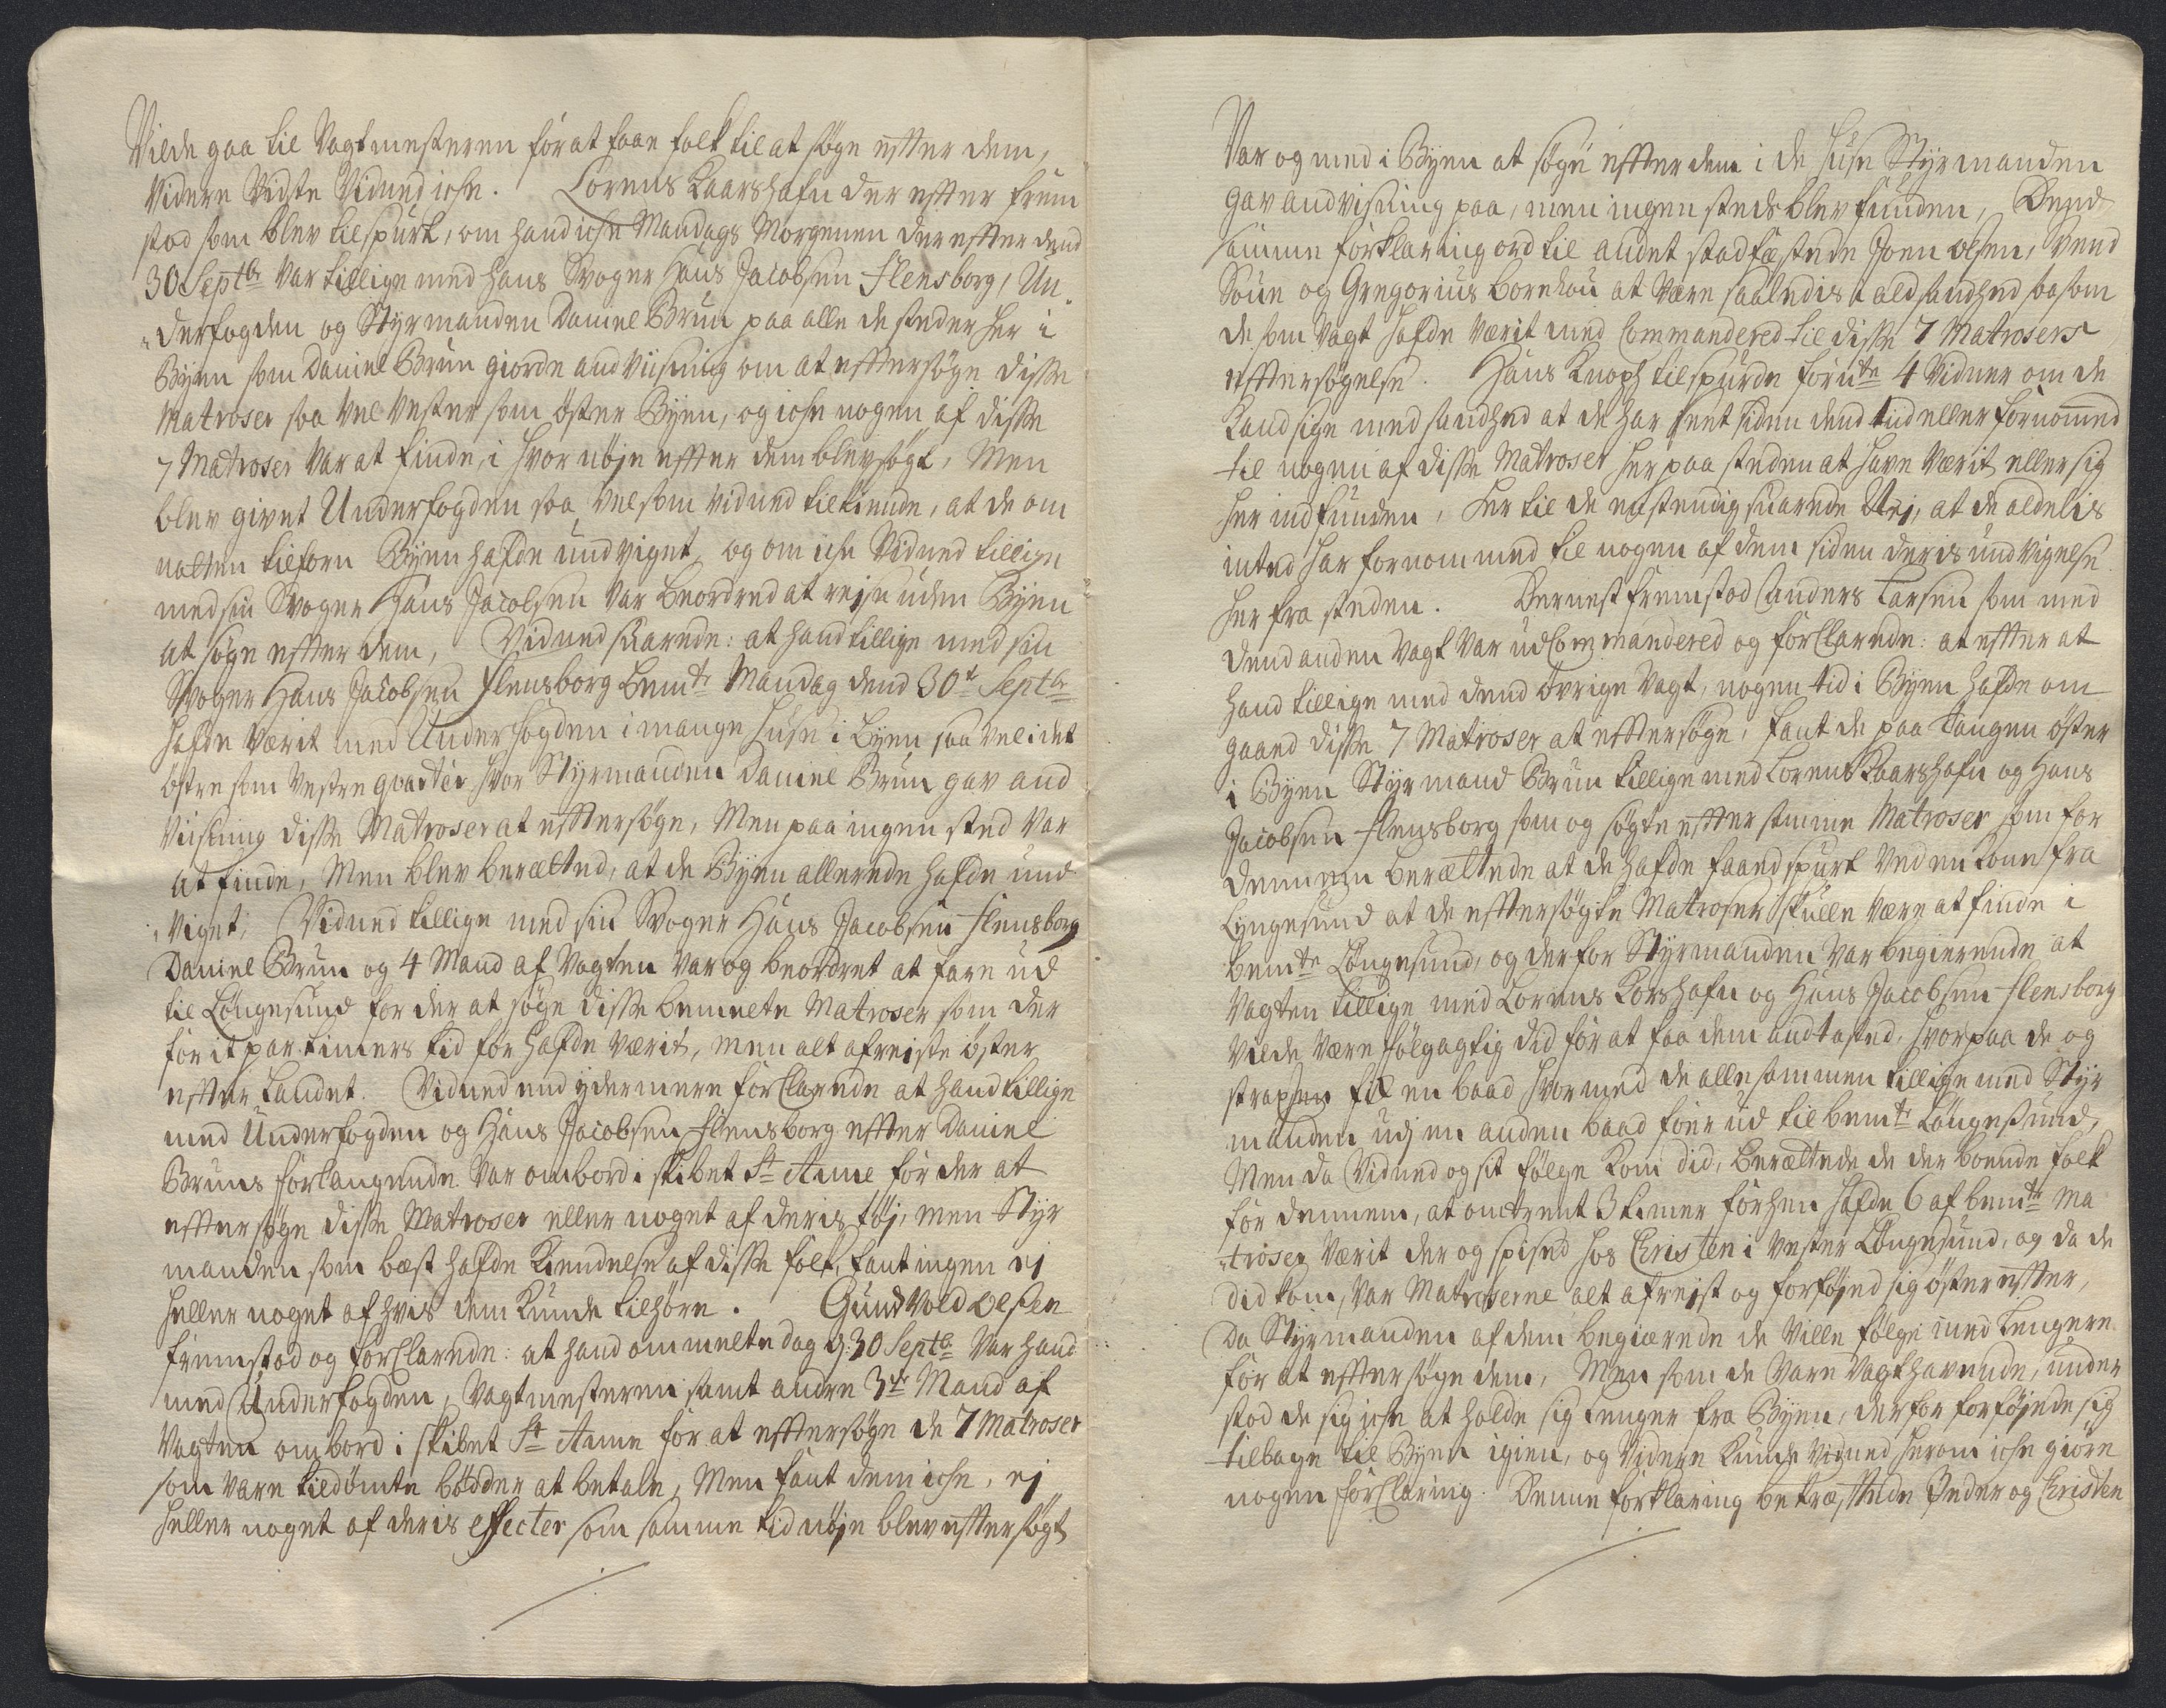 Vilde gaa til Vagtmesteren for at faae folk til at søge effter dem,
Videre Vidste Vidned iche. Lorens Kaarshafn der effter frem
stod som blev tilspurt, om hand iche Mandags Morgenen der effter dend
30 Septbr Var tillige med hans Svoger Hans Jacobsen Flensborg, Un
derfogden og Styrmanden Daniel Brun paa alle de steder her i
Byen som Daniel Brun giorde andviisning om at efftersøge disse
Matroser saa vel Vester som öster Byen, og iche nogen af disse
7 Matroser Var at finde, i hvor nøje effter dem blev søgt, Men
blev givet Underfogden saa vel som vidned tilkiende, at de om
natten tilforn Byen hafde undviget, og om iche Vidned tillige
med sin Svoger Hans Jacobsen Var beordred at rejse uden Byen
at søge effter dem, Vidned suarede: at hand tillige med sin
Svoger Hans Jacobsen Flensborg bemte Mandag dend 30te Septbr
hafde Værit med Underfogden i mange huse i Byen saa vel i det
östre som Vestre qvarter hvor Styrmanden Daniel Brun gav and
Viisning disse Matroser at efftersøge, Men paa ingen sted Var
at finde, Men blev berætted, at de Byen allerede hafde und
viget, Vidned tillige med sin Svoger Hans Jacobsen Flensborg
Daniel Brun og 4 Mand af Vagten Var og beordret at fare ud
til Löngesund for der at søge disse bemelte Matroser som der
for it par timers tid før hafde værit, men alt afreiste öster
effter Landet. Vidned end ydermere forClarede at hand tillige
med Underfogden og Hans Jacobsen Flensborg effter Daniel
Bruns forlangende Var ombord i skibet St Anne for der at
efftersøge disse Matroser eller noget af deris tøj, men Styr
manden som bæst hafde Kiendelse af disse folk, fant ingen ej
heller noget af hvis dem Kunde tilhøre. Gundvold Olsen
fremstod og forClarede: at hand ommelte dag d: 30 Septbr Var hand
med Underfogden, Vagtmesteren samt andre 3de Mand af
Vagten ombord i skibet St Anne for at efftersøge de 7 Matroser
som vare tildömte bödder at betale, Men fant dem iche, ej
heller noget af deris effecter som samme tid nøje blev efftersøgt
Var og med i Byen at søge effter dem i de huse Styrmanden
gav andvisning paa, men ingen steds blev funden, Dend
samme forklaring ord til andet stadfæstede Joen olsen, Svend
Soue og Gregorius bornhou at være saaledis i ald sandhed saasom
de som Vagt hafde værit med Commandered til disse 7 Matrosers
efftersøgelse. Hans Knoph tilspurde forute 4 Vidner om de
Kand sige med sandhed at de har seet siden dend tid eller fornommed
til nogen af disse Matroser her paa steden at have Værit eller sig
her indfunden, Her til de eenstendig suarede Nej, at de aldelis
inted har fornommed til nogen af dem siden deris undvigelse
her fra steden. Dernest fremstod Anders Larsen som med
dend anden Vagt Var udCommandered og forClarede: at effter at
hand tillige med dend övrige Vagt, nogen tid i Byen hafde om
gaaed disse 7 Matroser at efftersøge, fant de paa Tangen öster
i Byen Styrmand Brun tillige med Lorens Kaarshafn og Hans
Jacobsen Flensborg som og søgte effter samme Matroser som for
dennem berættede at de hafde faaed spurt ved en Kone fra
Lyngesund at de efftersøgte Matroser skulle være at finde i
bemte Löngesund, og derfor Styrmanden Var begierende at
Vagten tillige med Lorens Korshafn og Hans Jacobsen Flensborg
vilde være følgagtig did for at faa dem andtasted, hvor paa de og
strapsen fik en baad hvormed de allesammen tillige med Styr
manden udj en anden baad foer ud til bemte Löngesund,
Men da Vidned og sit følge kom did, berættede de der boende folk
for dennem, at omtrent 3 timer forhen hafde 6 af bemte Ma
troser Værit der og spised hos Christen i Vester Löngesund, og da de
did kom, var Matroserne alt afrejst og forføjed sig öster effter,
Da Styrmanden af dem begiærede de ville følge med lengere
for at efftersøge dem, Men som de vare Vagthavende, under
stod de sig iche at holde sig lenger fra Byen, derfor forføjede sig
tilbage til Byen igien, og Videre kunde Vidned herom iche giøre
nogen forClaring. Denne forklaring bekræfftede Peder og Christen